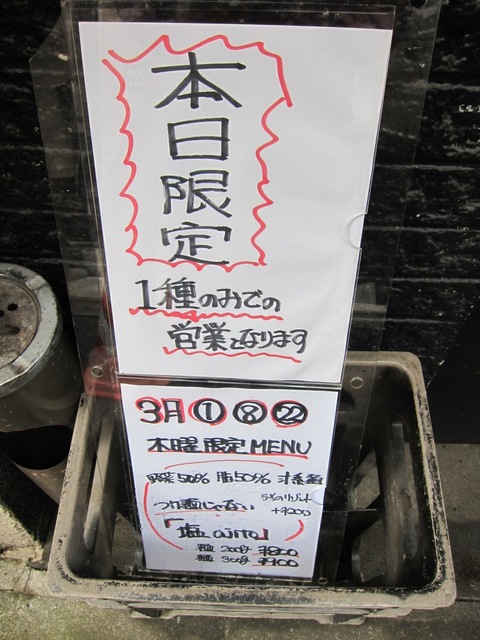 本日限定
1種のみでの
営業となります
3月 ① ⑧ ㉒
木曜限定MENU
野菜50% 脂50% 汁系麺
つけ麺じゃない
+¥200
「塩ajito」
麺 200g ¥800
麺 300g ¥900